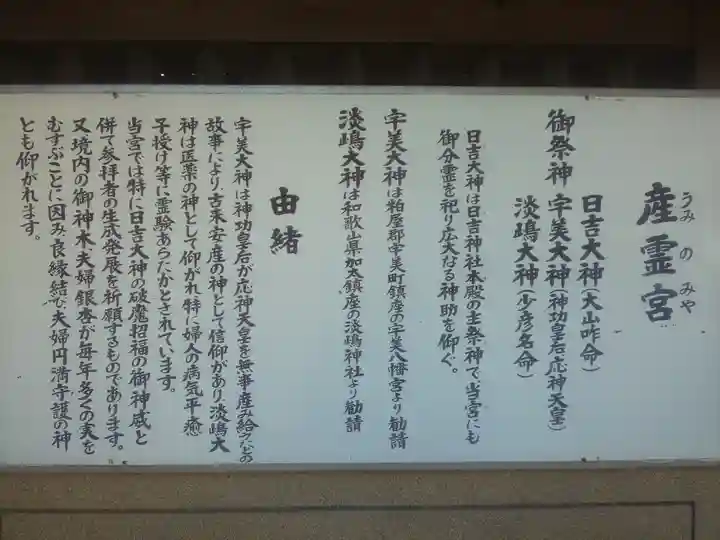 産霊宮
うみのみや
御祭神
日吉大神(大山咋命)
宇美大神(神功皇后、応神天皇)
淡嶋大神(少彦名命)
日吉大神は日吉神社本殿の主祭神で、当宮にも
御分霊を祀り広大なる神助を仰ぐ。
宇美大神は粕屋郡宇美町鎮座の宇美八幡宮より勧請
淡嶋大神は和歌山県加太鎮座の淡嶋神社より勧請
由緒
宇美大神は神功皇后が応神天皇を無事産み給ふなどの
故事により、古来安産の神として信仰があり、淡嶋大
神は医薬の神として仰がれ、特に婦人の病気平癒
子授け等に霊験あらたかとされています。
当宮では特に日吉大神の破魔招福の御神威と
併て参拝者の生成発展を祈願するものであります。
又境内の御神木、夫婦銀杏が毎年多くの実を
むすぶことに因み、良縁結び、夫婦円満守護の神
とも仰がれます。